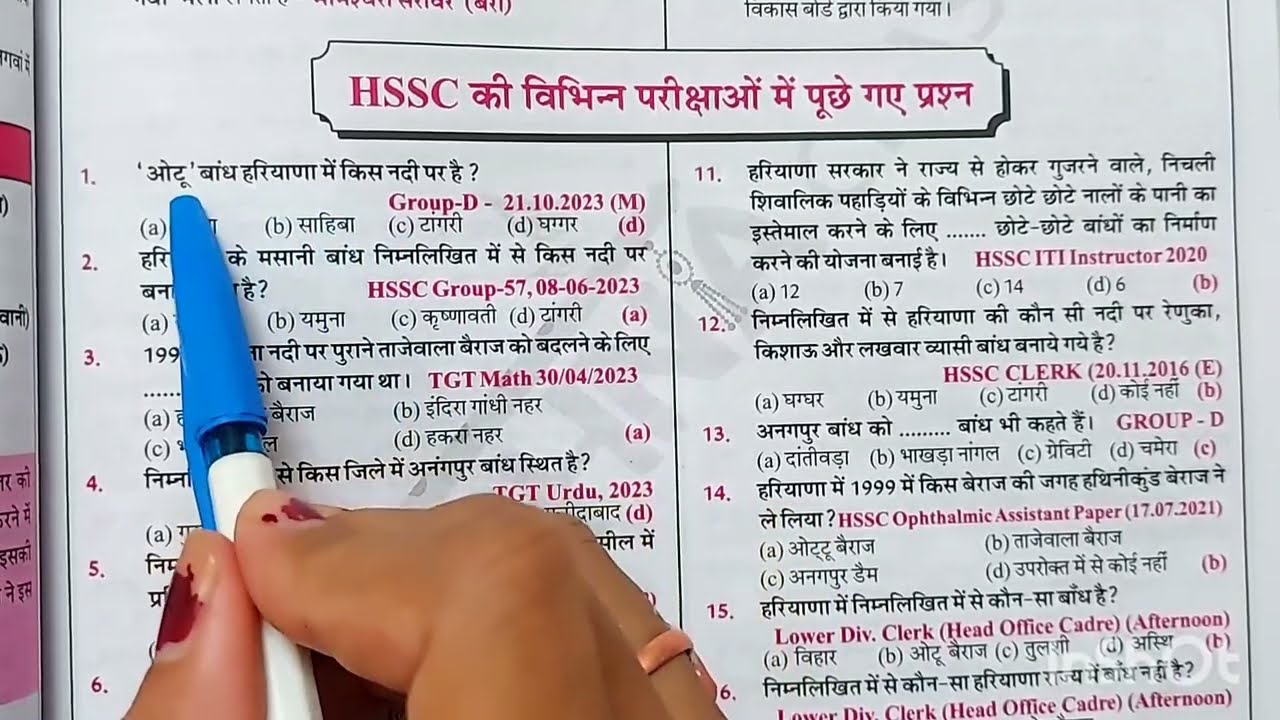 (बेरी)
विकास बोर्ड द्वारा किया गया।
HSSC की विभिन्न परीक्षाओं में पूछे गए प्रश्न
1. 'ओटू' बांध हरियाणा में किस नदी पर है ?
Group-D - 21.10.2023 (M)
(a) (b) साहिबा (c) टांगरी (d) घग्गर (d)
2. के मसानी बांध निम्नलिखित में से किस नदी पर
है? HSSC Group-57, 08-06-2023
(a) (b) यमुना (c) कृष्णावती (d) टांगरी (a)
3. 199 नदी पर पुराने ताजेवाला बैराज को बदलने के लिए
...... को बनाया गया था। TGT Math 30/04/2023
(a) बैराज (b) इंदिरा गांधी नहर
(c) (d) हकरा नहर (a)
4. से किस जिले में अनंगपुर बांध स्थित है?
TGT Urdu, 2023
(a) (d)
5. में
6.
11. हरियाणा सरकार ने राज्य से होकर गुजरने वाले, निचली
शिवालिक पहाड़ियों के विभिन्न छोटे छोटे नालों के पानी का
इस्तेमाल करने के लिए ....... छोटे-छोटे बांधों का निर्माण
करने की योजना बनाई है। HSSC ITI Instructor 2020
(a) 12 (b) 7 (c) 14 (d) 6 (b)
12. निम्नलिखित में से हरियाणा की कौन सी नदी पर रेणुका,
किशाऊ और लखवार व्यासी बांध बनाये गये है?
HSSC CLERK (20.11.2016 (E)
(a) घग्घर (b) यमुना (c) टांगरी (d) कोई नहीं (b)
13. अनगपुर बांध को ......... बांध भी कहते हैं। GROUP - D
(a) दांतीवड़ा (b) भाखड़ा नांगल (c) ग्रेविटी (d) चमेरा (c)
14. हरियाणा में 1999 में किस बेराज की जगह हथिनीकुंड बेराज ने
ले लिया ? HSSC Ophthalmic Assistant Paper (17.07.2021)
(a) ओट्टू बैराज (b) ताजेवाला बैराज
(c) अनगपुर डैम (d) उपरोक्त में से कोई नहीं (b)
15. हरियाणा में निम्नलिखित में से कौन-सा बाँध है?
Lower Div. Clerk (Head Office Cadre) (Afternoon)
(a) विहार (b) ओटू बैराज (c) तुलशी (d) अस्थि (b)
16. निम्नलिखित में से कौन-सा हरियाणा राज्य में बांध नहीं है?
Lower Div. Clerk (Head Office Cadre) (Afternoon)